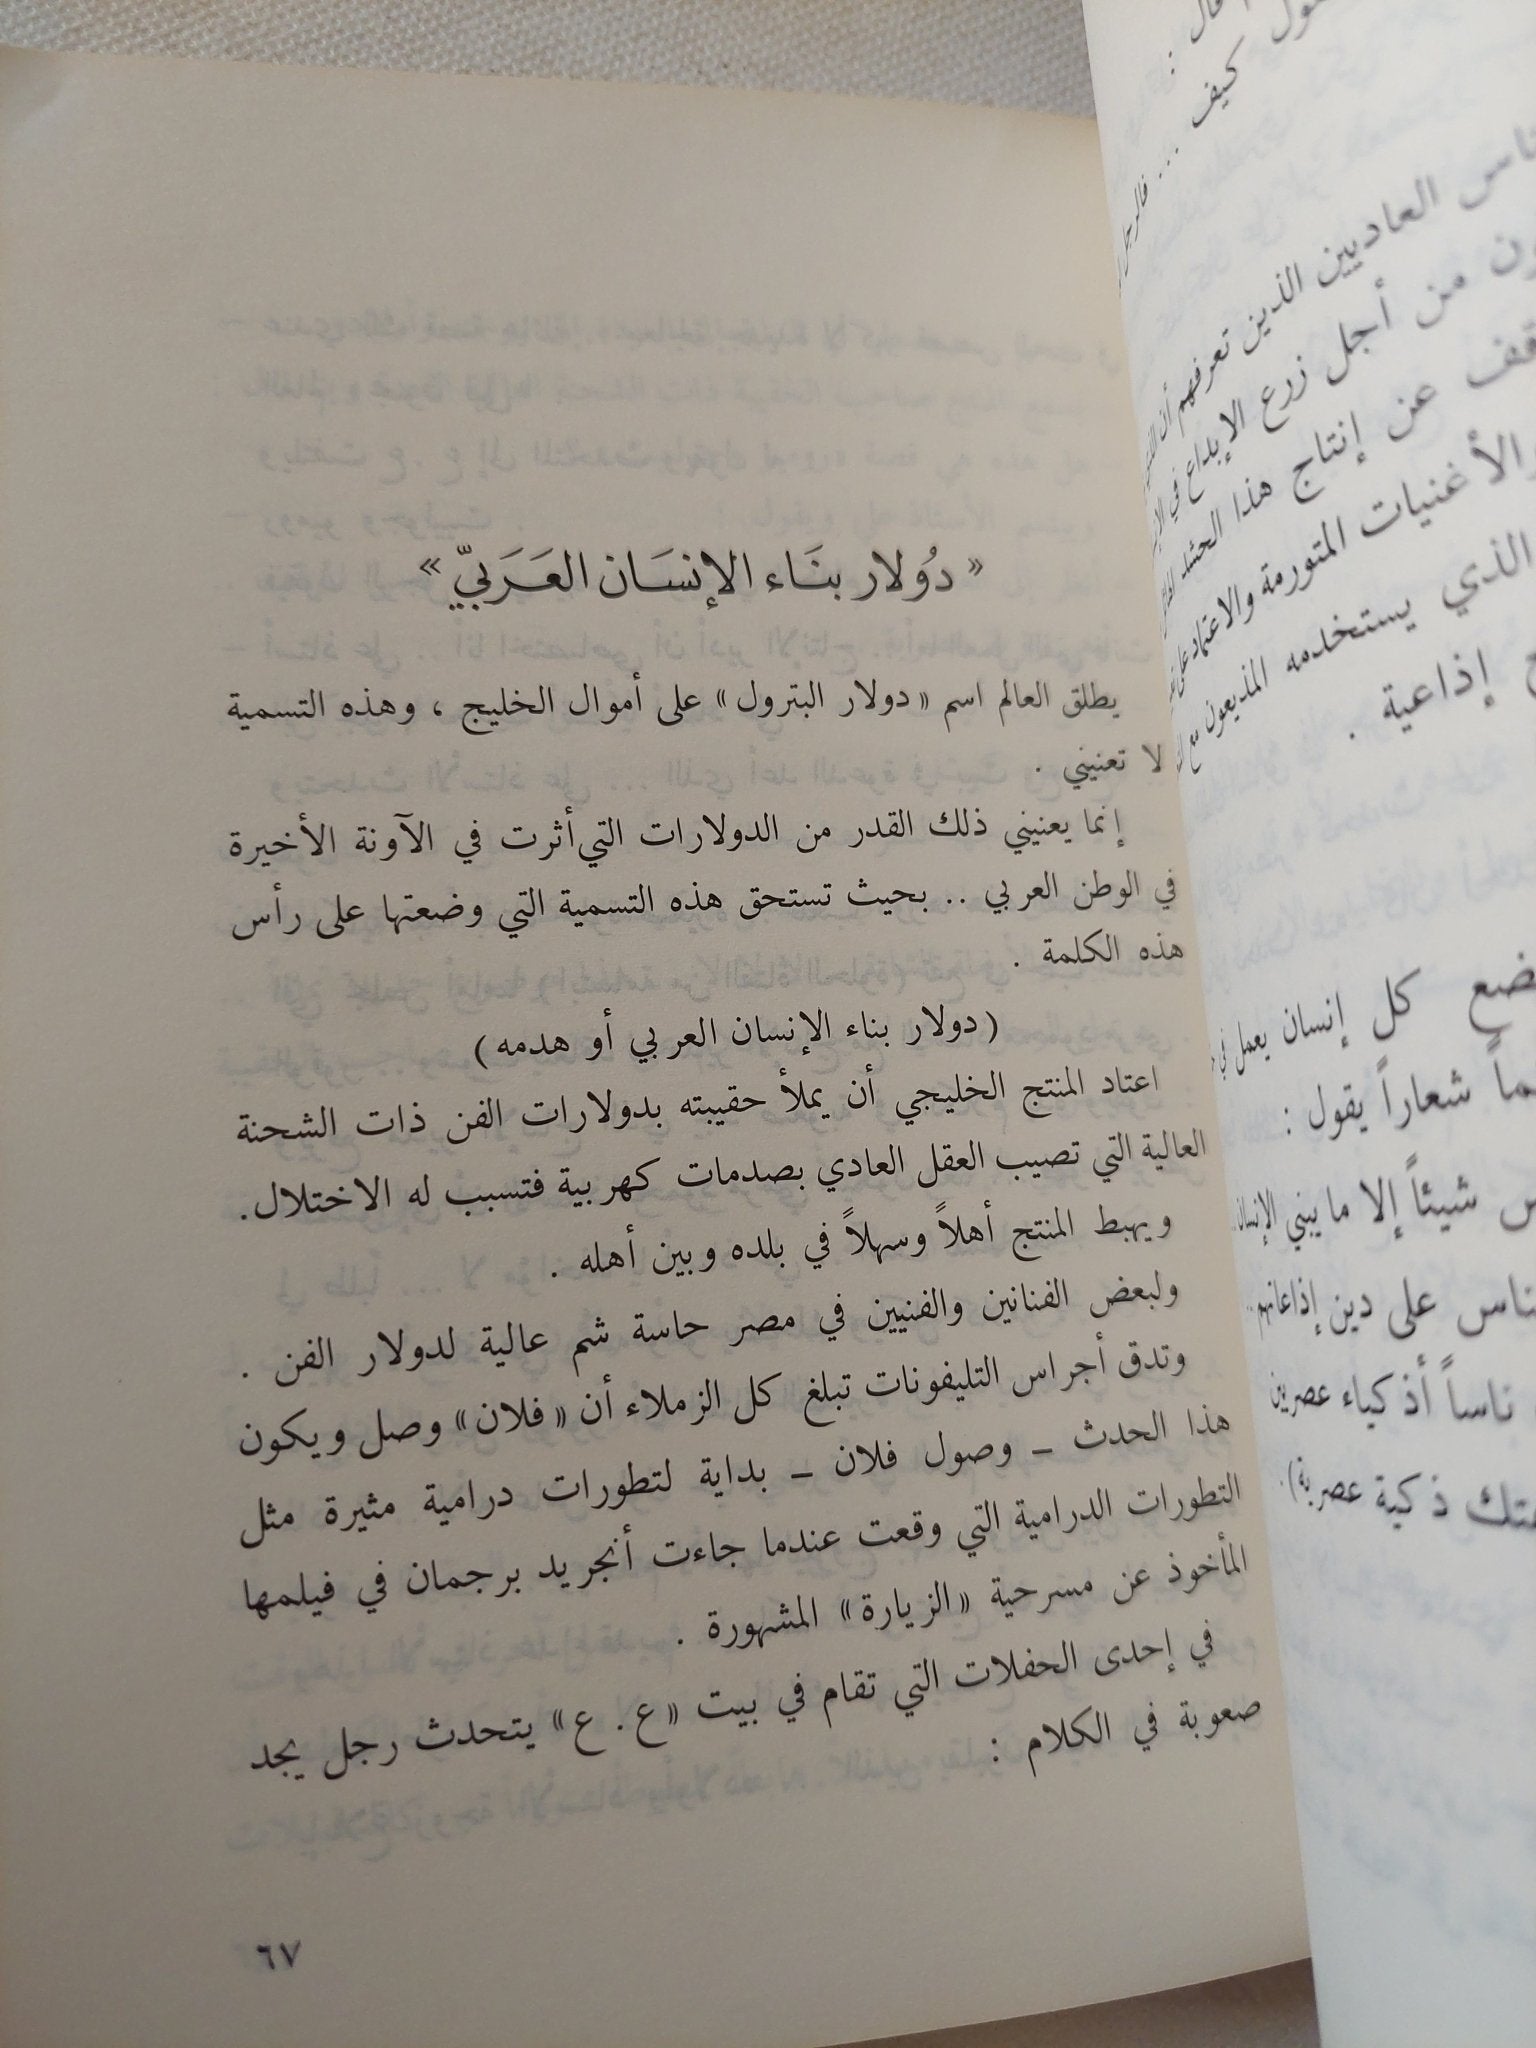 « دُولار بنَاء الإنسَان العَرَبيّ »
يطلق العالم اسم « دولار البترول » على أموال الخليج ، وهذه التسمية
لا تعنيني .
إنما يعنيني ذلك القدر من الدولارات التي أثرت في الآونة الأخيرة
في الوطن العربي .. بحيث تستحق هذه التسمية التي وضعتها على رأس
هذه الكلمة .
( دولار بناء الإنسان العربي أو هدمه )
اعتاد المنتج الخليجي أن يملأ حقيبته بدولارات الفن ذات الشحنة
العالية التي تصيب العقل العادي بصدمات كهربية فتسبب له الاختلال.
ويهبط المنتج أهلاً وسهلاً في بلده وبين أهله .
ولبعض الفنانين والفنيين في مصر حاسة شم عالية لدولار الفن .
وتدق أجراس التليفونات تبلغ كل الزملاء أن « فلان » وصل ويكون
هذا الحدث – وصول فلان – بداية لتطورات درامية مثيرة مثل
التطورات الدرامية التي وقعت عندما جاءت أنجريد برجمان في فيلمها
المأخوذ عن مسرحية « الزيارة » المشهورة .
في إحدى الحفلات التي تقام في بيت « ع . ع » يتحدث رجل يجد
صعوبة في الكلام :
٦٧
قال :
كيف ... فالرجل
العاديين الذين تعرفهم أن
من أجل زرع الإبداع في
عن إنتاج هذا الحشد
والأغنيات المتورمة والاعتماد على
الذي يستخدمه المذيعون مع
إذاعية .
كل إنسان يعمل في
شعاراً يقول :
شيئاً إلا ما يبني الإنسان..
على دين إذاعاتهم..
ناساً أذكياء عصريين
ذكية عصرية).